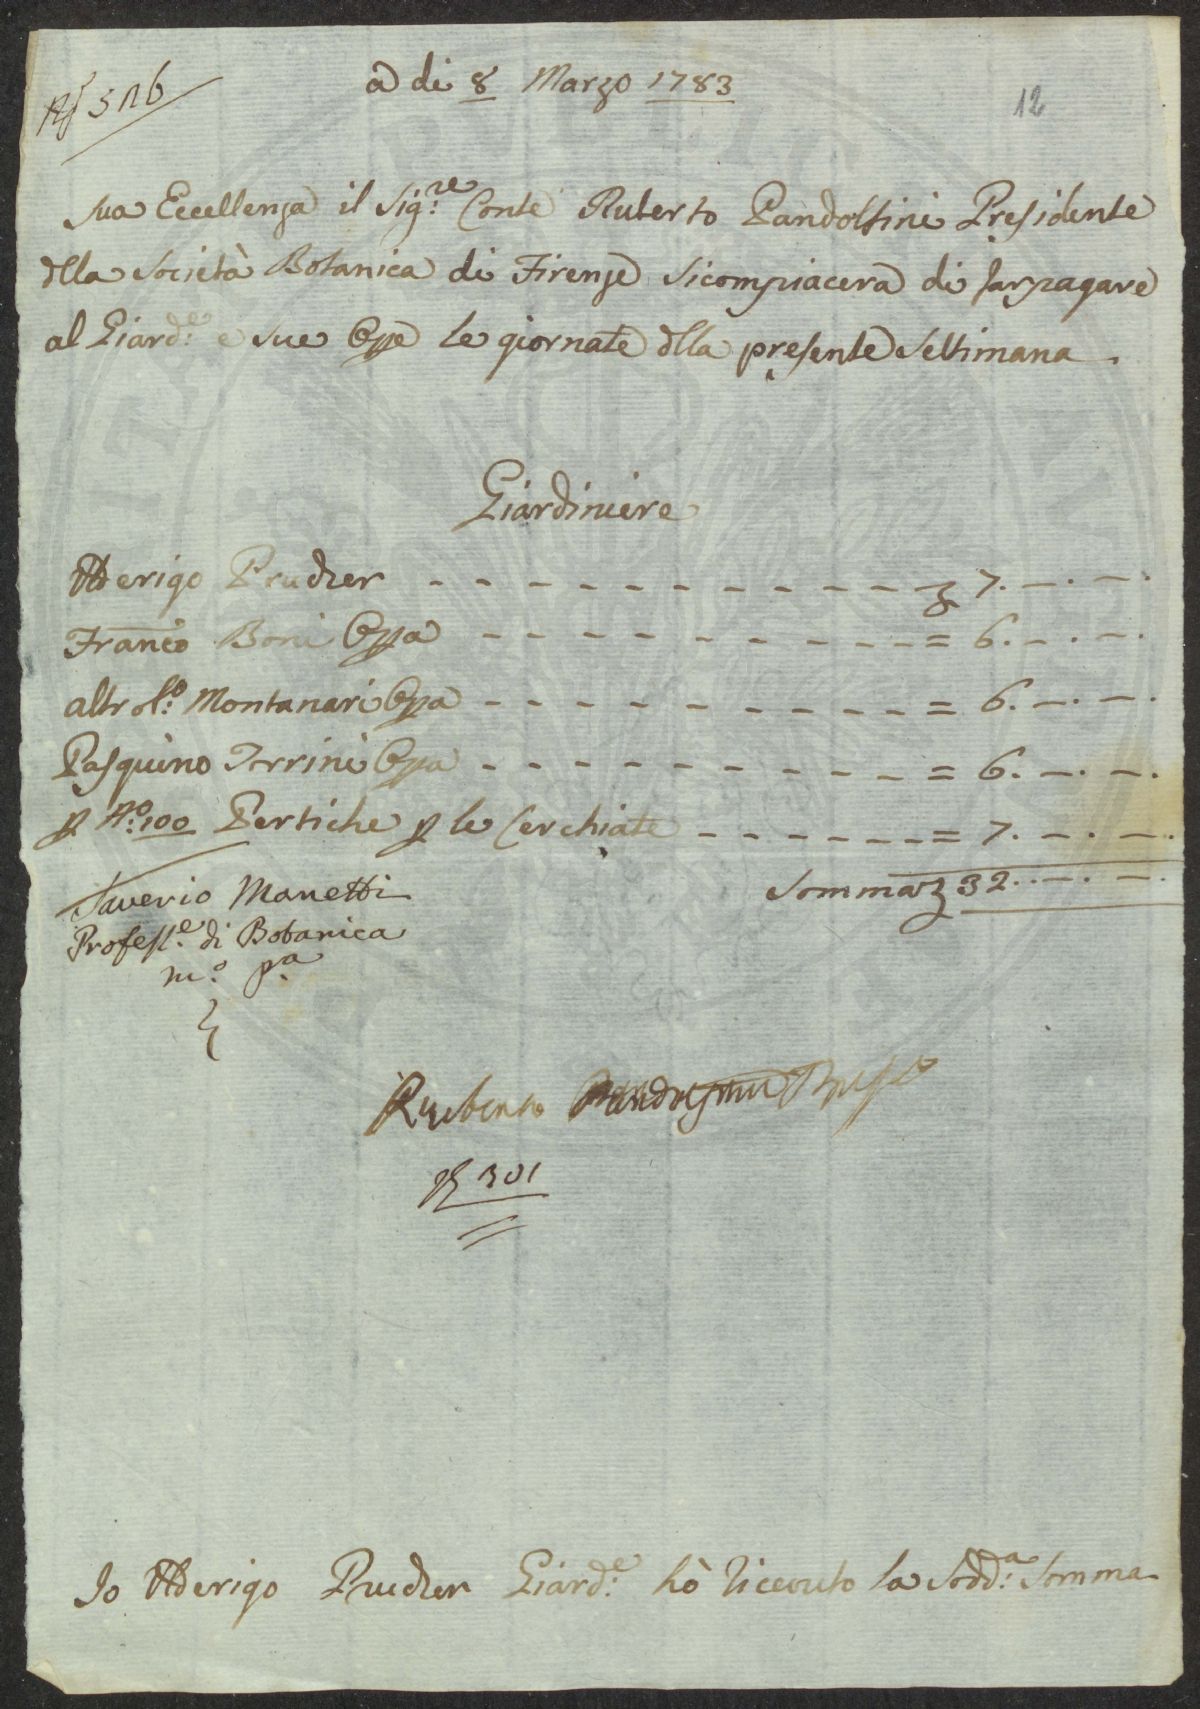 a di 8 Marzo 1783
12
Sua Eccellenza il Sig:re Conte Ruberto Pandolfini Presidente
dlla Società Botanica di Firenze Sicompiacerà di farpagare
al Giard:e e sue Oppe le giornate dlla presente Settimana.
Giardiniere
Aderigo Prucker 7. —. —.
Franco Boni Oppa = 6. —. —.
altro Montanari Oppa = 6. —. —.
Pasquino Terrini Oppa = 6. —. —.
p N:o 100 Pertiche p le Cerchiate = 7. —. —.
Somma 32. —. —.
Saverio Manetti
Profess:e di Botanica
m:o p:a
Ruberto Pandolfini
301
Io Aderigo Prucker Giard:e hò riceuto la Sodd:a Somma